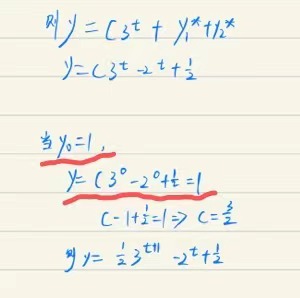 则 y = C3^t + y₁* + y₂*
y = C3^t - 2^t + 1/2
当 y₀ = 1,
y = C3⁰ - 2⁰ + 1/2 = 1
C - 1 + 1/2 = 1 => C = 3/2
则 y = 1/2 3^(t+1) - 2^t + 1/2